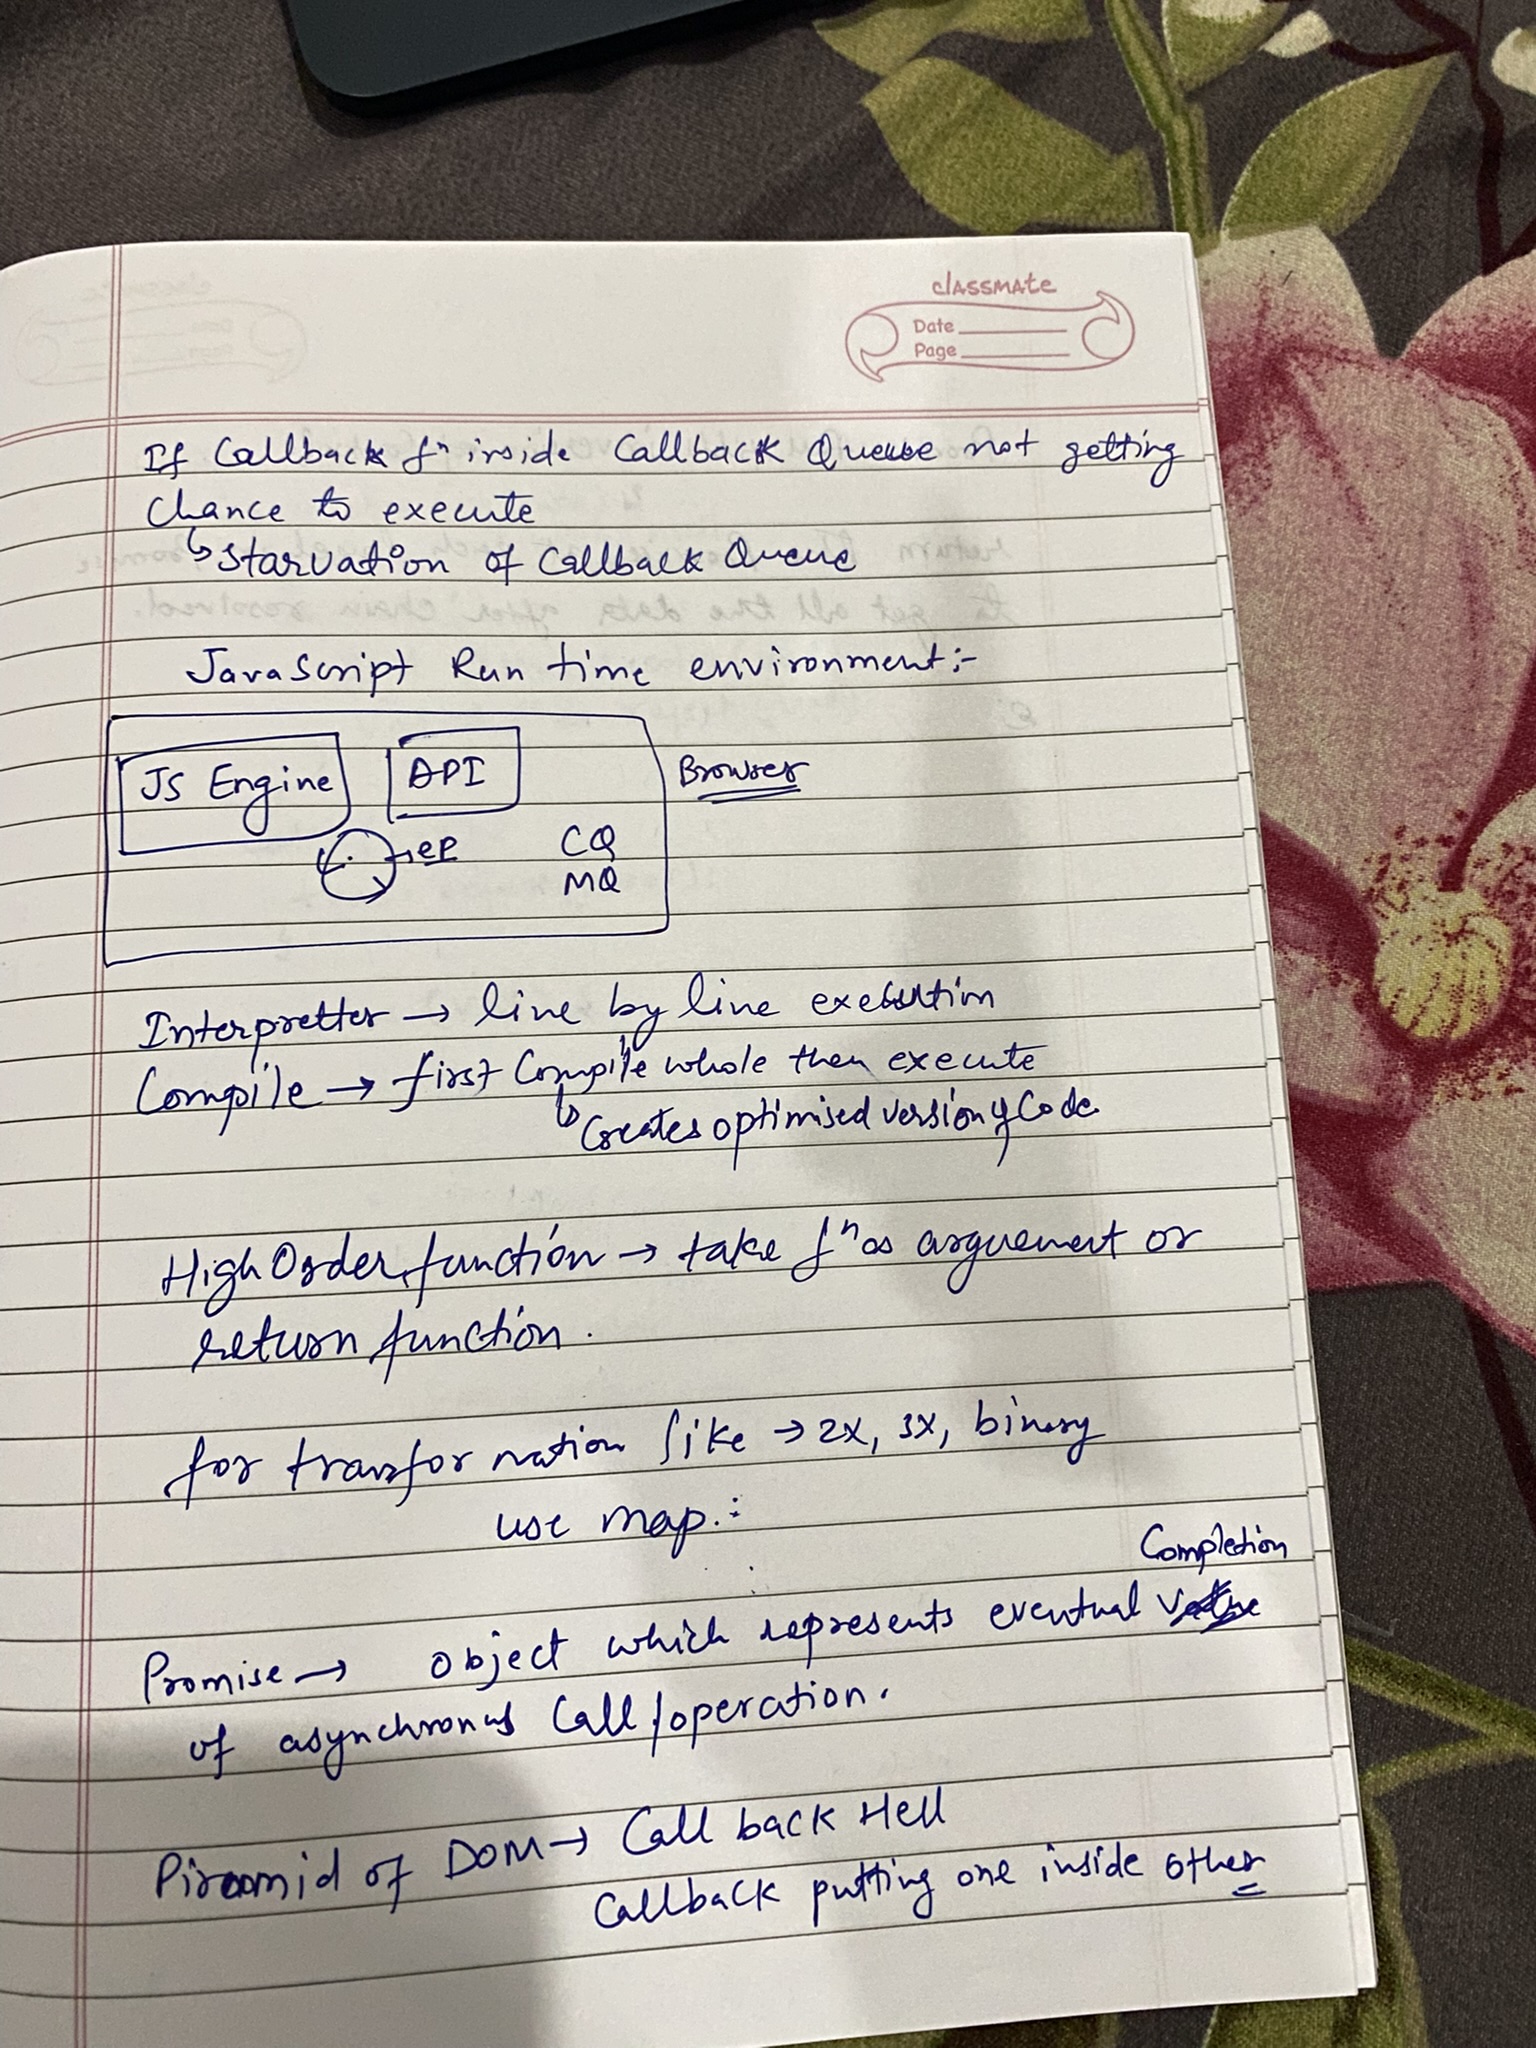 classmate
Date
Page
If Callback fⁿ inside Callback Queue not getting
chance to execute
↳ Starvation of Callback Queue
JavaScript Run time environment:-
JS Engine
API
Browser
CQ
MQ
Interpretter → line by line execution
Compile → first Compile whole then execute
↳ Creates optimised version of Code
High Order function → take fⁿ as arguement or
return function.
for transformation like → 2x, 3x, binary
use map.:
Completion
Promise → object which represents eventual
of asynchronus Call / operation.
Piramid of DOM → Call back Hell
Callback putting one inside other